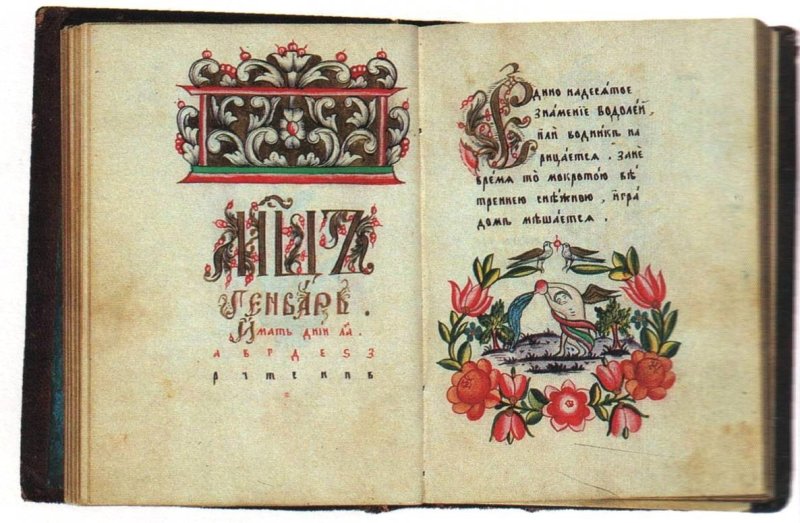 Мц҃ъ
Генварь.
Имать дній ла.
а в г д е ѕ з
р ч т е п п ѣ
Єдино надесѧтое
знаменїе водолей,
или водникъ на
рицается. Зане
время то мокротою вѣ
тренею снѣжною, и гра
домъ мѣшается.